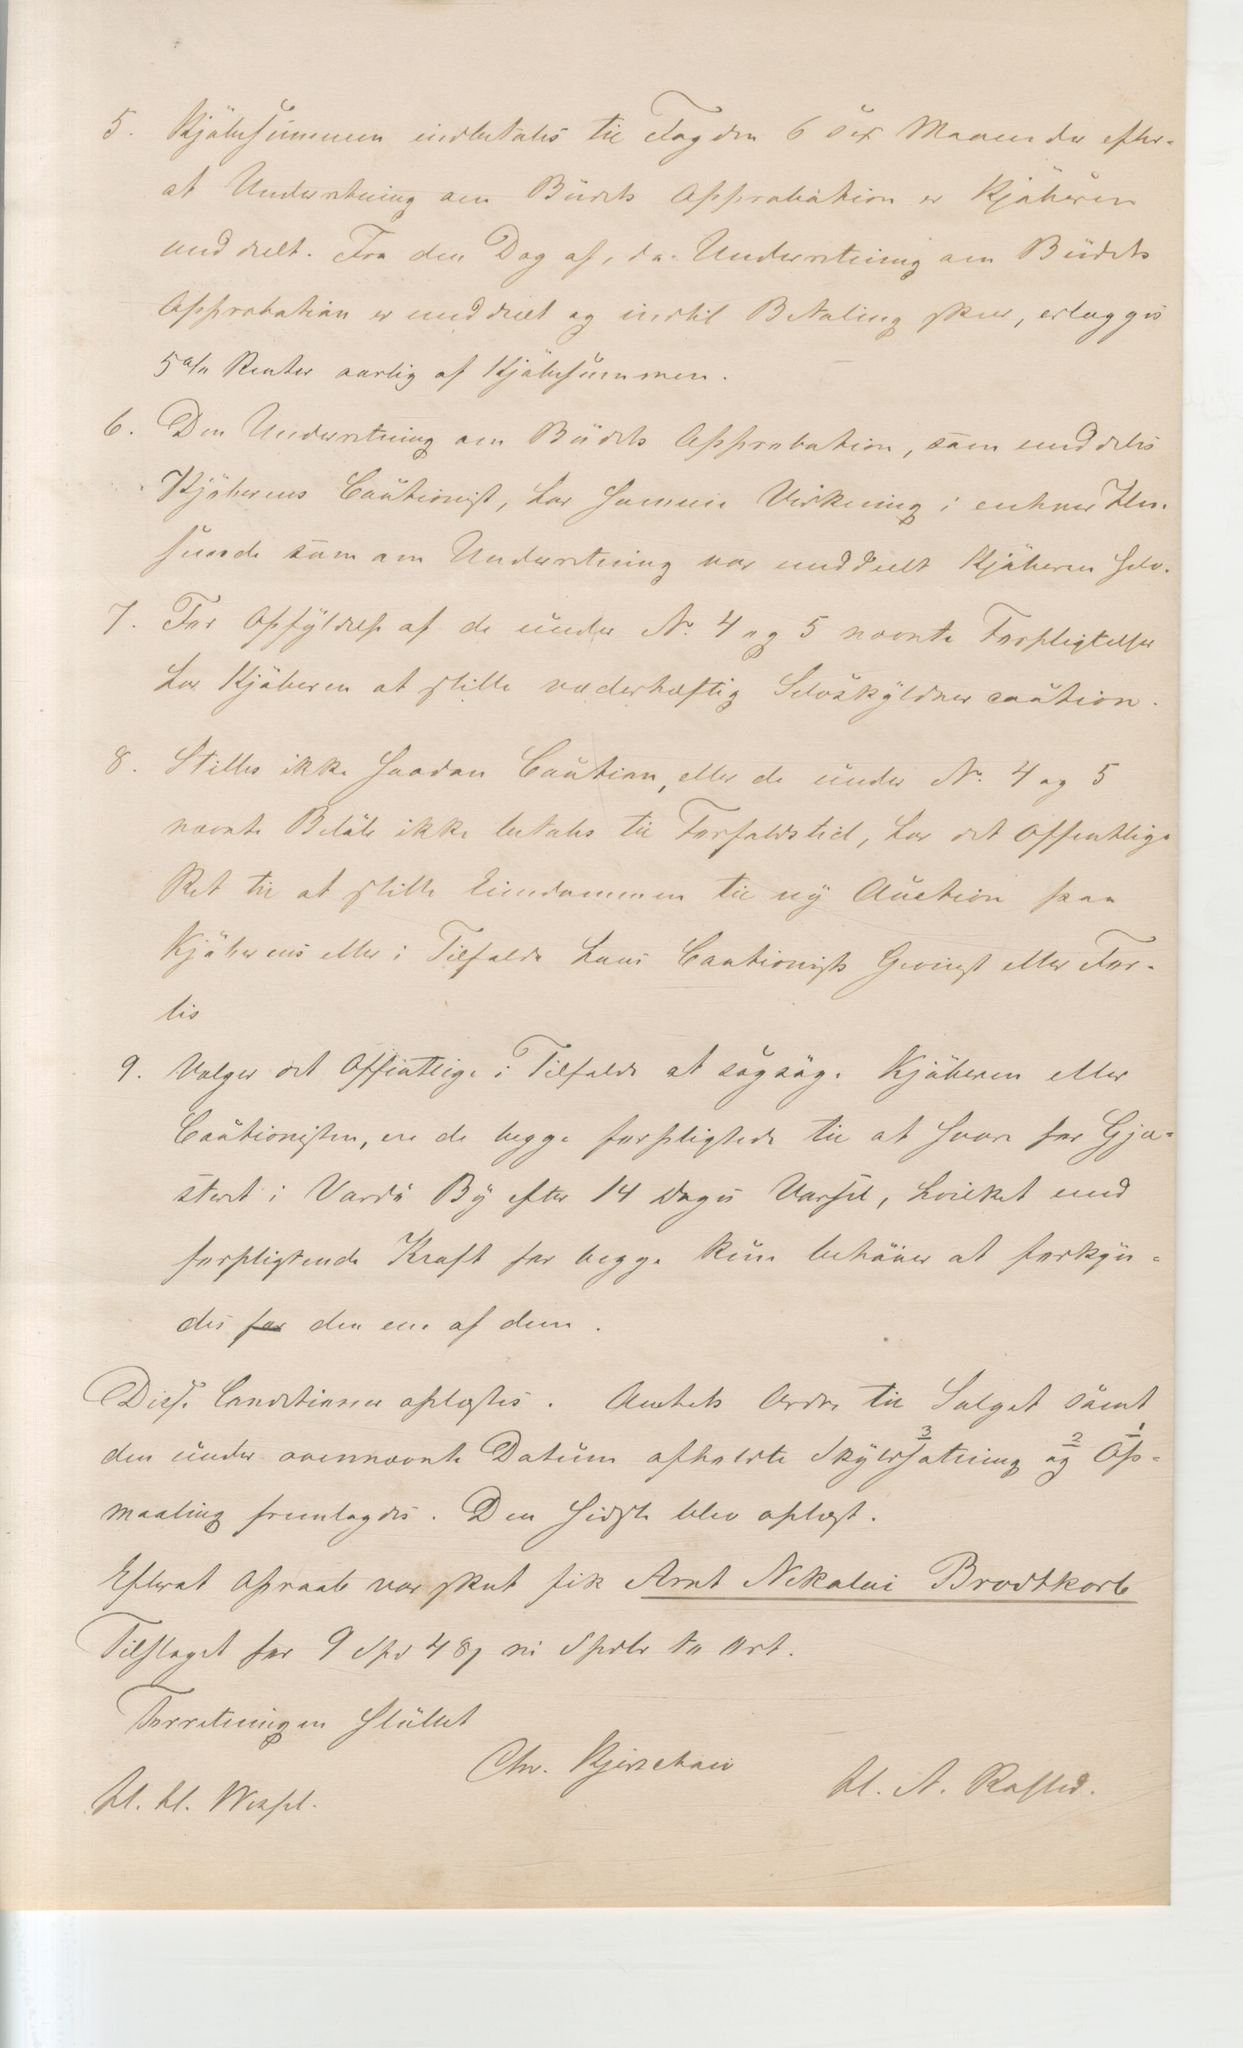 5. Kjøbesummen indbetales til Fogden 6 sex Maaneder efter-
at Underretning om Budets Approbation er Kjøberen
meddelt. Fra den Dag af, da Underretning om Budets
Approbation er meddelt og indtil Betaling sker, erlægges
5 o/o Renter aarlig af Kjøbesummen.
6. Den Underretning om Budets Approbation, som meddeles
Kjøberens Cautionist, har samme Virkning i enhver Hen-
seende som om Underretning var meddelt Kjøberen selv.
7. For Opfyldelse af de under No. 4 og 5 nævnte Forpligtelser
har Kjøberen at stille vederhæftig Selvskyldnercaution.
8. Stilles ikke saadan Caution, eller de under No. 4 og 5
nævnte Beløb ikke betales til Forfaldstid, har det Offentlige
Ret til at stille Eiendommen til ny Auction paa
Kjøberens eller i Tilfælde hans Cautionists Gevinst eller For-
lis
9. Vælger det Offentlige i Tilfælde at sagsøge Kjøberen eller
Cautionisten, ere de begge forpligtede til at svare for Gjæ-
steret i Vardø By efter 14 Dages Varsel, hvilket med
forpligtende Kraft for begge kun behøver at forkyn-
des for den ene af dem.
Disse Conditioner oplæstes. Amtets Ordre til Salget samt
den under ovennævnte Datum afholdte Skyldsætning 3 og 2 Op- 1
maaling fremlagdes. Den sidste blev oplæst.
Efterat Opraab var skeet fik Arnt Nikolai Brodtkorb
Tilslaget for 9 Spd 48 ni Spdlr to Ort.
Forretningen sluttet
Chr. Kjerschow
H. H. Wessel. H. A. Rasted.